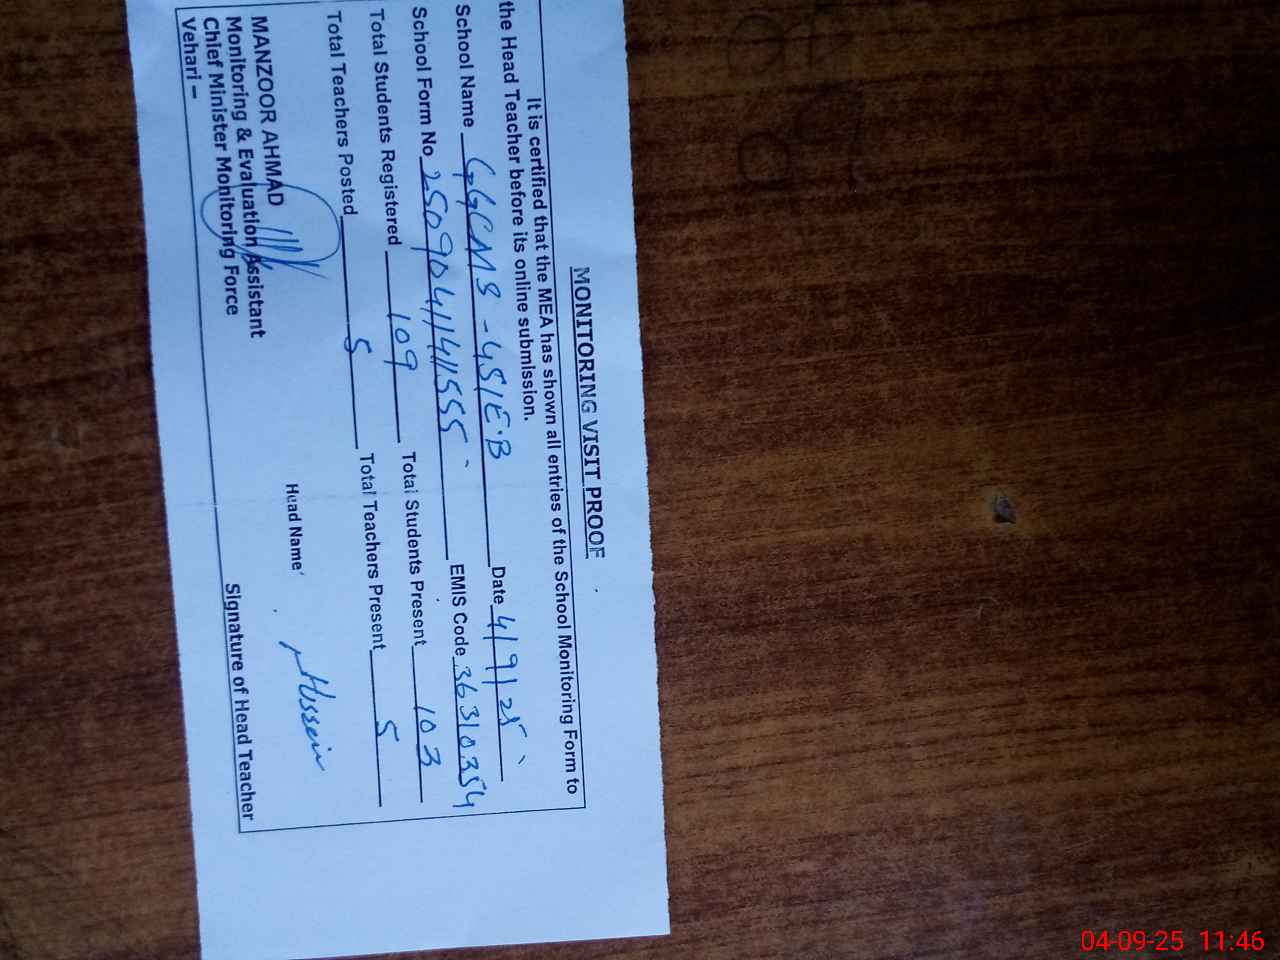 MONITORING VISIT PROOF
It is certified that the MEA has shown all entries of the School Monitoring Form to
the Head Teacher before its online submission.
School Name GGCMS-45/E.B Date 4/9/25
School Form No 25090411411555 EMIS Code 36310354
Total Students Registered 109 Total Students Present 103
Total Teachers Posted 5 Total Teachers Present 5
Head Name
MANZOOR AHMAD
Monitoring & Evaluation Assistant
Chief Minister Monitoring Force
Vehari –
Signature of Head Teacher
04-09-25 11:46